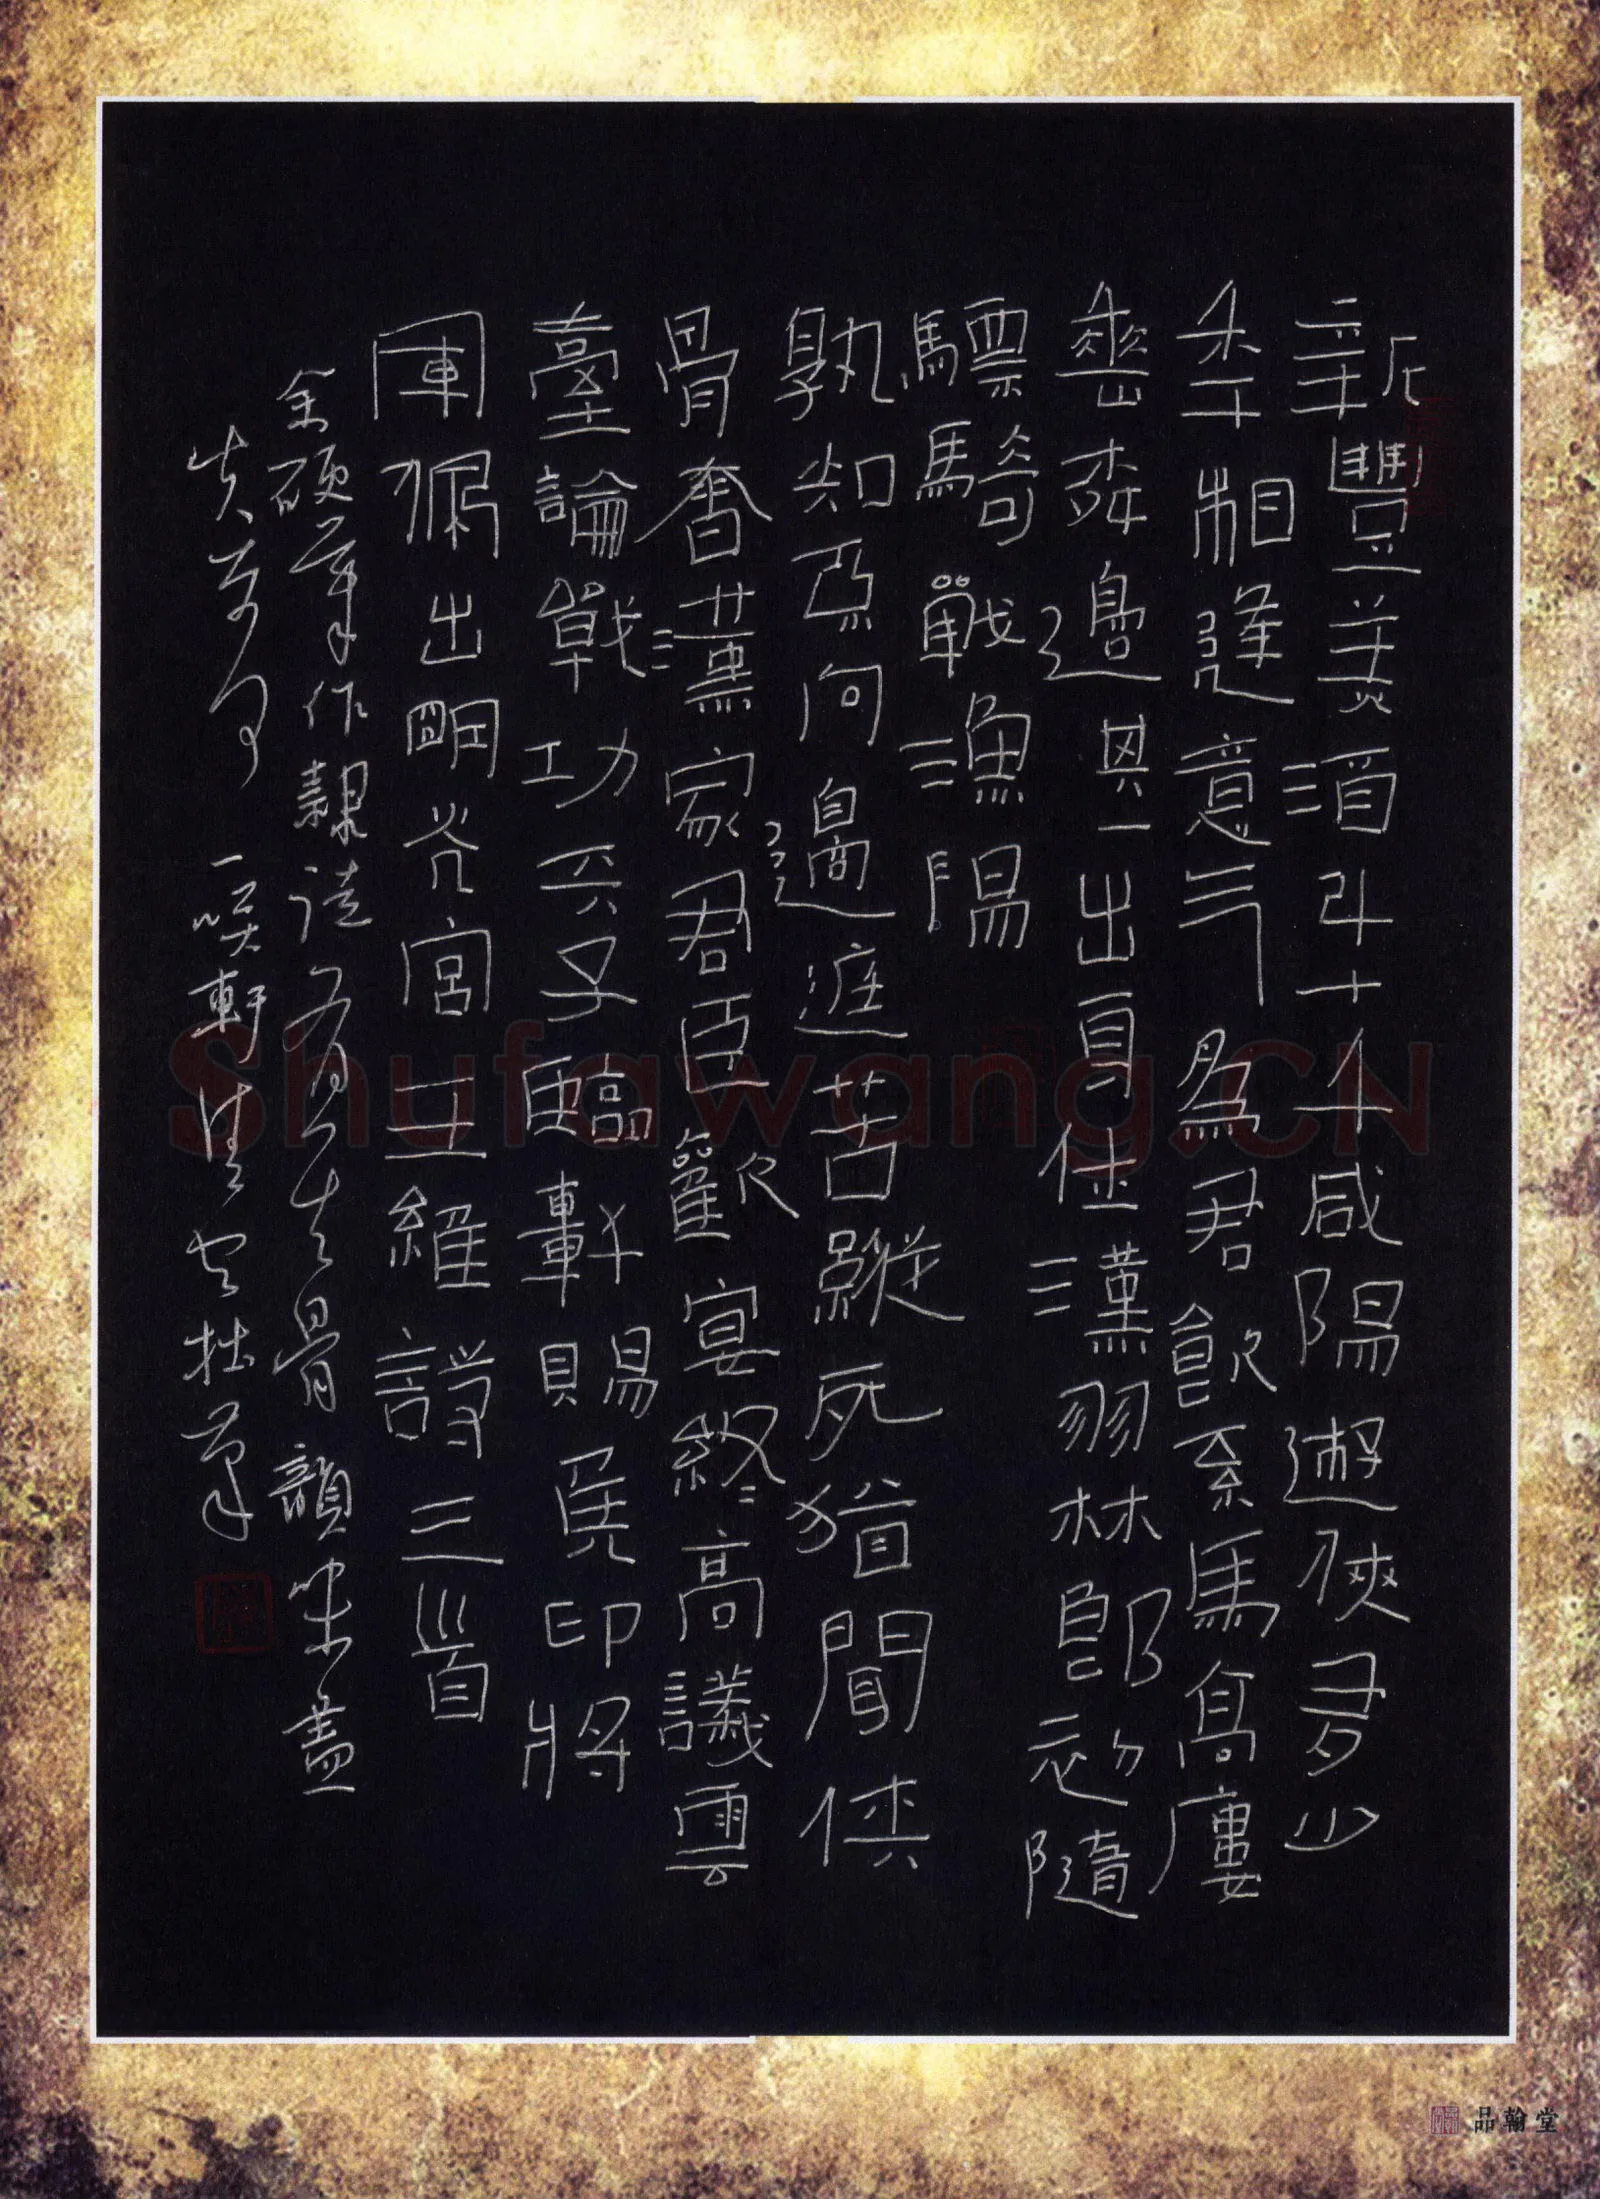 新豐美酒斗十千咸陽遊俠多少
年相逢意气為君飲系馬高廔
垂柳邊其一出身仕漢羽林郎初隨
驃騎戰漁陽
孰知不向邊庭苦縱死猶聞俠
骨香漢家君臣歡宴終高議雲
臺論戰功天子臨軒賜侯印將
軍佩出明光宮王維詩三首
余硬筆作隸有骨韻味盡
失一笑軒拙筆
Shufawang.CN
品翰堂